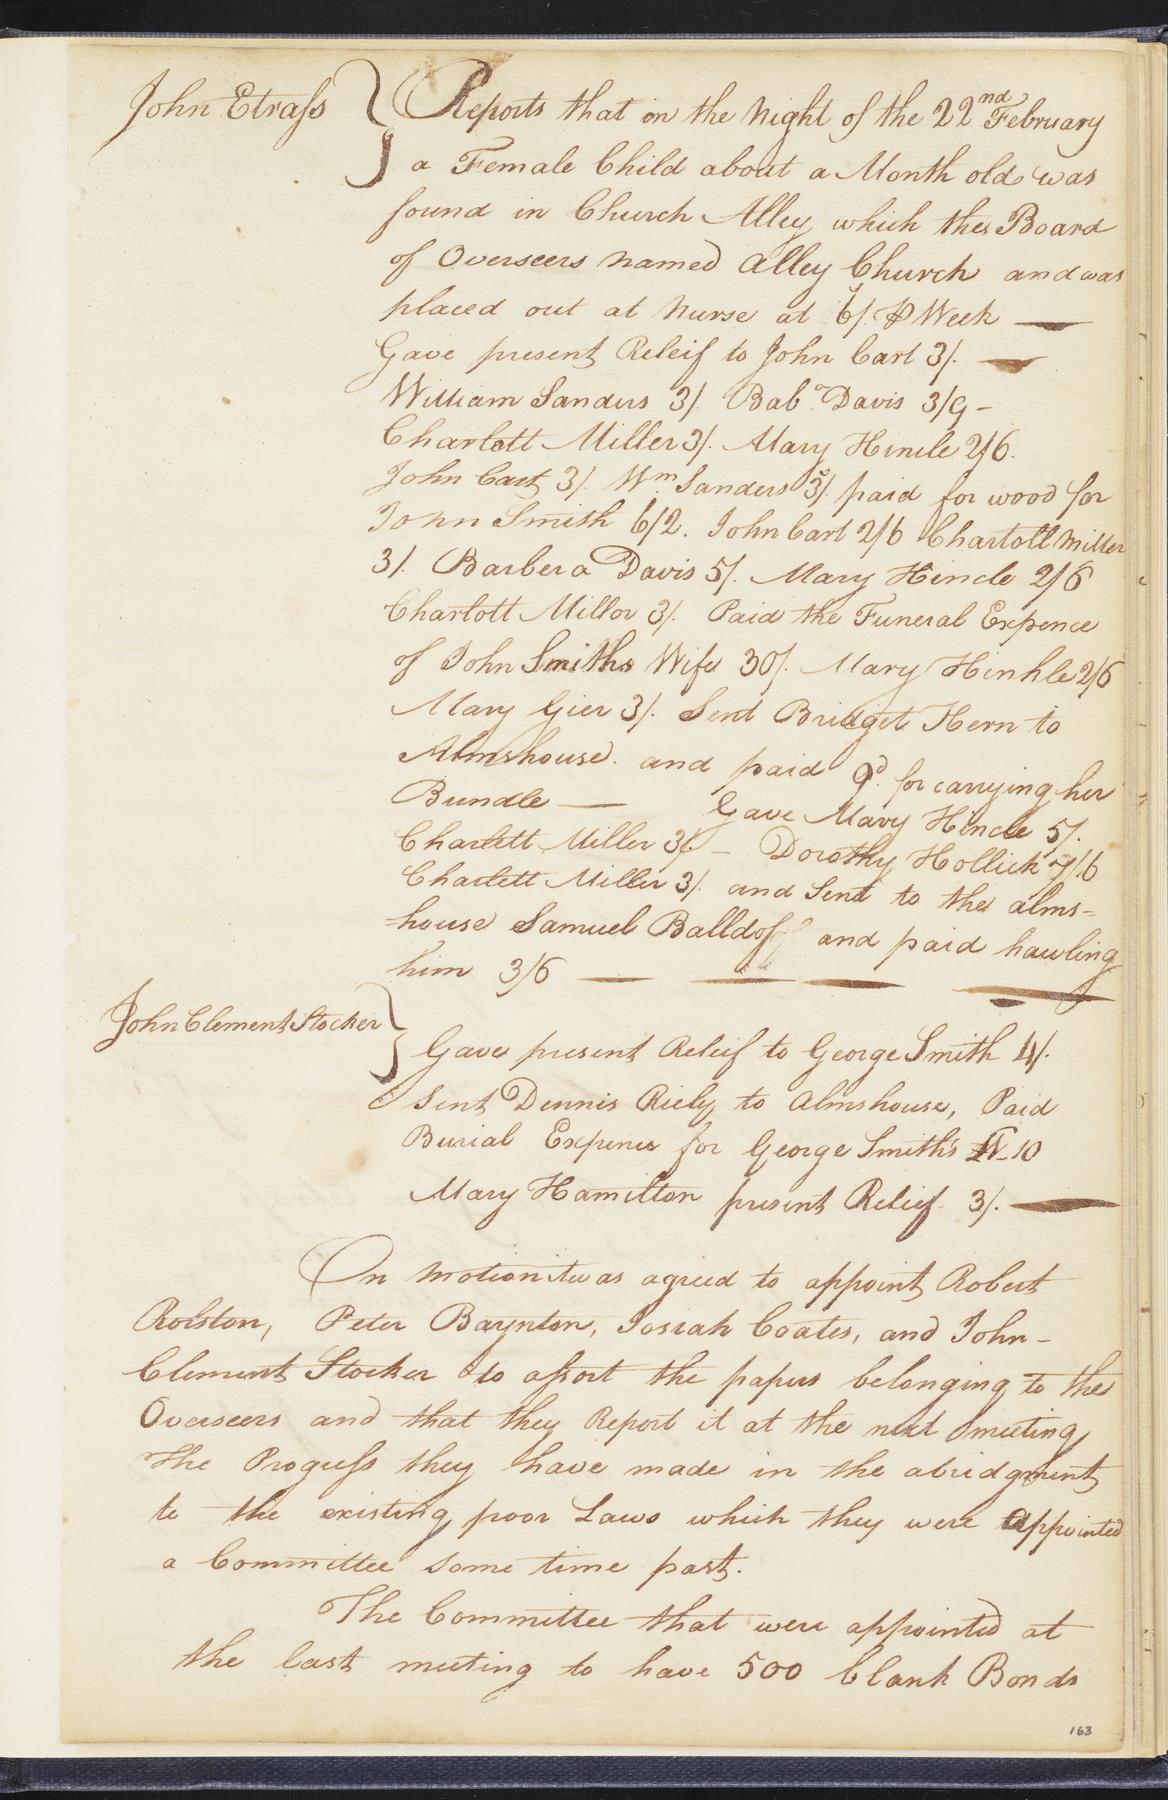 John Etrass } Reports that on the Night of the 22nd February
a Female Child about a Month old was
found in Church Alley which the Board
of Overseers named Alley Church and was
placed out at Nurse at 6/ ⅌ Week —
Gave present Releif to John Cart 3/. —
William Sanders 3/. Baba Davis 3/9 -
Charlott Miller 3/. Mary Hincle 2/6.
John Cart 3/. Wm Sanders 3/. paid for wood for
John Smith 6/2. John Cart 2/6 Charlott Miller
3/. Barbera Davis 5/. Mary Hincle 2/6
Charlott Miller 3/. Paid the Funeral Expence
of John Smiths Wife 30/. Mary Hinkle 2/6
Mary Gier 3/. Sent Bridget Hern to
Almshouse. and paid 9d. for carrying her
Bundle — Gave Mary Hincle 5/.
Charlett Miller 3/. - Dorothy Hollick 7/6
Charlett Miller 3/. and Sent to the alms=
-house Samuel Balldoff and paid hawling
him 3/6 — — — —
John Clement Stocker }
Gave present Releif to George Smith 4/.
Sent Dennis Riely to Almshouse, Paid
Burial Expence for George Smith's 10
Mary Hamilton present Relief 3/. —
On Motion it was agreed to appoint Robert
Rolston, Peter Baynton, Josiah Coates, and John-
Clement Stocker to assort the papers belonging to the
Overseers and that they Report it at the next meeting
the Progress they have made in the abridgment
to the existing poor Laws which they were appointed
a Committee some time past.
The Committee that were appointed at
the last meeting to have 500 blank Bonds
163